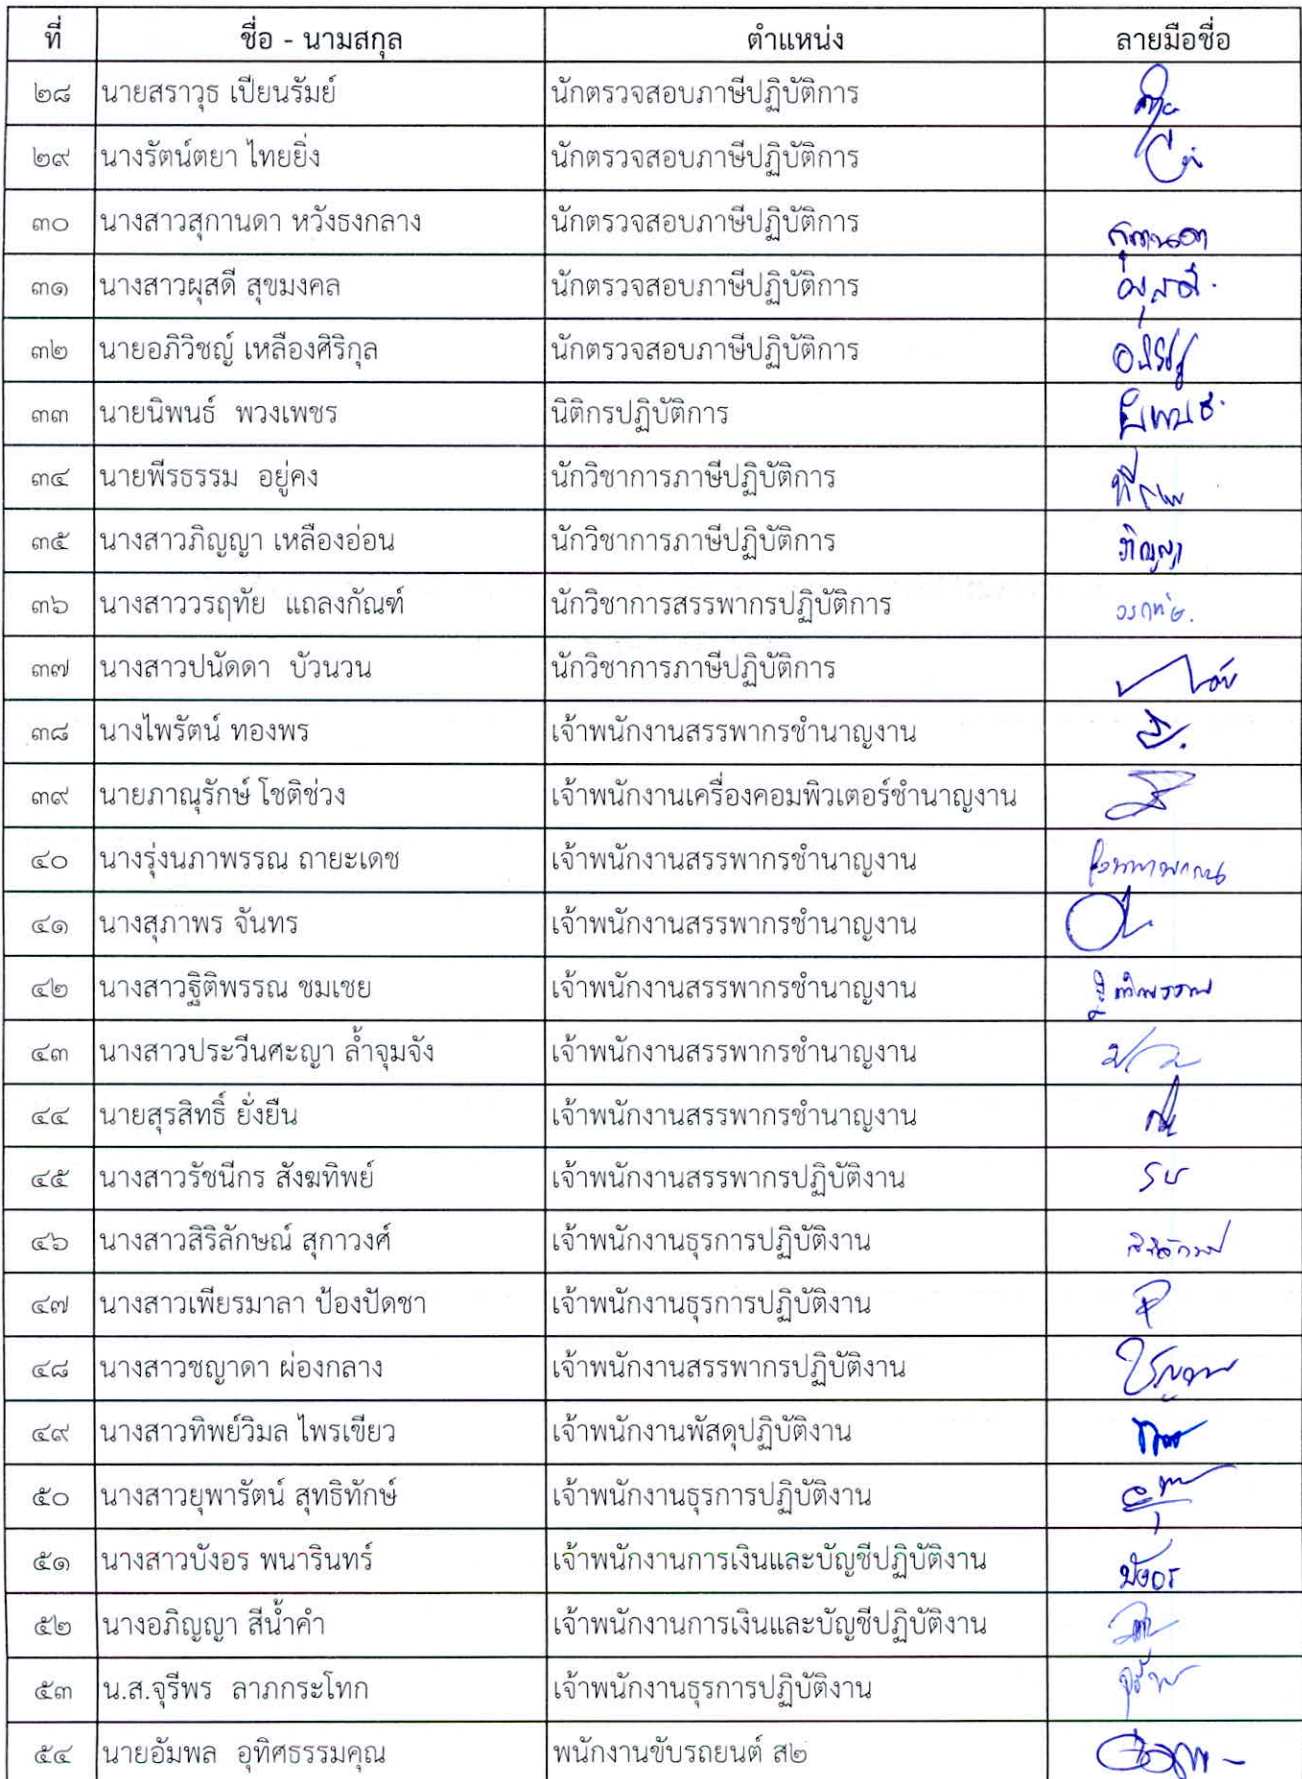 ที่ ชื่อ - นามสกุล ตำแหน่ง ลายมือชื่อ
๒๘ นายสราวุธ เปียนรัมย์ นักตรวจสอบภาษีปฏิบัติการ
๒๙ นางรัตน์ตยา ไทยยิ่ง นักตรวจสอบภาษีปฏิบัติการ
๓๐ นางสาวสุกานดา หวังธงกลาง นักตรวจสอบภาษีปฏิบัติการ สุกานดา
๓๑ นางสาวผุสดี สุขมงคล นักตรวจสอบภาษีปฏิบัติการ ผุสดี
๓๒ นายอภิวิชญ์ เหลืองศิริกุล นักตรวจสอบภาษีปฏิบัติการ
๓๓ นายนิพนธ์ พวงเพชร นิติกรปฏิบัติการ นิพนธ์
๓๔ นายพีรธรรม อยู่คง นักวิชาการภาษีปฏิบัติการ
๓๕ นางสาวภิญญา เหลืองอ่อน นักวิชาการภาษีปฏิบัติการ ภิญญา
๓๖ นางสาววรฤทัย แถลงกัณฑ์ นักวิชาการสรรพากรปฏิบัติการ วรฤทัย
๓๗ นางสาวปนัดดา บัวนวน นักวิชาการภาษีปฏิบัติการ
๓๘ นางไพรัตน์ ทองพร เจ้าพนักงานสรรพากรชำนาญงาน
๓๙ นายภาณุรักษ์ โชติช่วง เจ้าพนักงานเครื่องคอมพิวเตอร์ชำนาญงาน
๔๐ นางรุ่งนภาพรรณ ถายะเดช เจ้าพนักงานสรรพากรชำนาญงาน
๔๑ นางสุภาพร จันทร เจ้าพนักงานสรรพากรชำนาญงาน
๔๒ นางสาวฐิติพรรณ ชมเชย เจ้าพนักงานสรรพากรชำนาญงาน ฐิติพรรณ
๔๓ นางสาวประวีนศะญา ล้ำจุมจัง เจ้าพนักงานสรรพากรชำนาญงาน
๔๔ นายสุรสิทธิ์ ยั่งยืน เจ้าพนักงานสรรพากรชำนาญงาน
๔๕ นางสาวรัชนีกร สังฆทิพย์ เจ้าพนักงานสรรพากรปฏิบัติงาน
๔๖ นางสาวสิริลักษณ์ สุกาวงศ์ เจ้าพนักงานธุรการปฏิบัติงาน สิริลักษณ์
๔๗ นางสาวเพียรมาลา ป้องปัดชา เจ้าพนักงานธุรการปฏิบัติงาน
๔๘ นางสาวชญาดา ผ่องกลาง เจ้าพนักงานสรรพากรปฏิบัติงาน
๔๙ นางสาวทิพย์วิมล ไพรเขียว เจ้าพนักงานพัสดุปฏิบัติงาน
๕๐ นางสาวยุพารัตน์ สุทธิทักษ์ เจ้าพนักงานธุรการปฏิบัติงาน
๕๑ นางสาวบังอร พนารินทร์ เจ้าพนักงานการเงินและบัญชีปฏิบัติงาน บังอร
๕๒ นางอภิญญา สีน้ำคำ เจ้าพนักงานการเงินและบัญชีปฏิบัติงาน
๕๓ น.ส.จุรีพร ลาภกระโทก เจ้าพนักงานธุรการปฏิบัติงาน
๕๔ นายอัมพล อุทิศธรรมคุณ พนักงานขับรถยนต์ ส๒